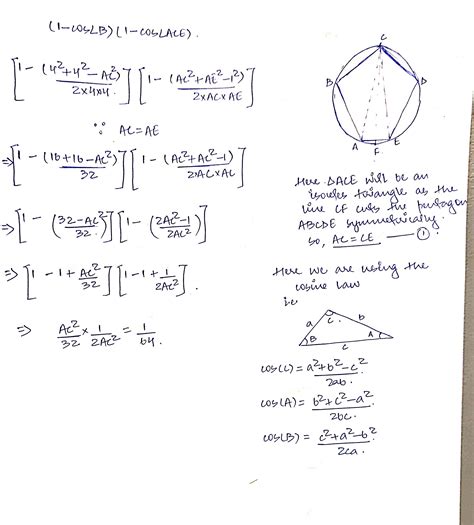 (1-cos∠B)(1-cos∠ACE).
[1 - (4²+4²-AC²)/(2×4×4)] [1 - (AC²+AE²-1²)/(2×AC×AE)]
∵ AC=AE
⇒ [1 - (16+16-AC²)/32] [1 - (AC²+AC²-1)/(2AC×AC)]
⇒ [1 - (32-AC²)/32] [1 - (2AC²-1)/(2AC²)]
⇒ [1-1+AC²/32] [1-1+1/(2AC²)].
⇒ AC²/32 × 1/(2AC²) = 1/64.
C
B
D
A
F
E
Here ΔACE will be an
isosceles triangle as the
line CF cuts the pentagon
ABCDE symmetrically.
so, AC=CE ①
Here we are using the
cosine law
ie
a
C
b
B
A
c
cos(C) = (a²+b²-c²)/2ab.
cos(A) = (b²+c²-a²)/2bc.
cos(B) = (c²+a²-b²)/2ca.